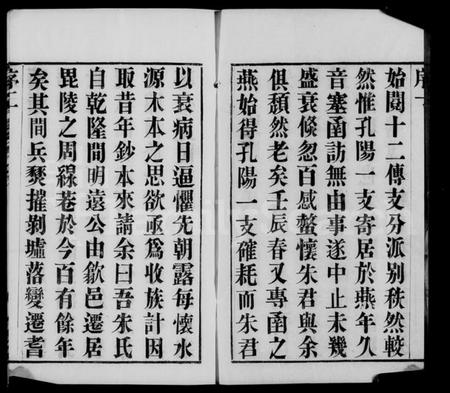 始闋十二傳支分派別秩然較
然惟孔陽一支寄居於燕年久
音塞函訪無由事遂中止未幾
盛衰倐忽百感螫懷朱君與余
俱頹然老矣壬辰春又專函之
燕始得孔陽一支確耗而朱君
以衰病日逼懼先朝露每懷水
源木本之思欲亟為收族計因
取昔年鈔本來請余曰吾朱氏
自乾隆間明遠公由歙邑遷居
毘陵之周線巷於今百有餘年
矣其間兵燹摧剝墟落變遷耆
序二